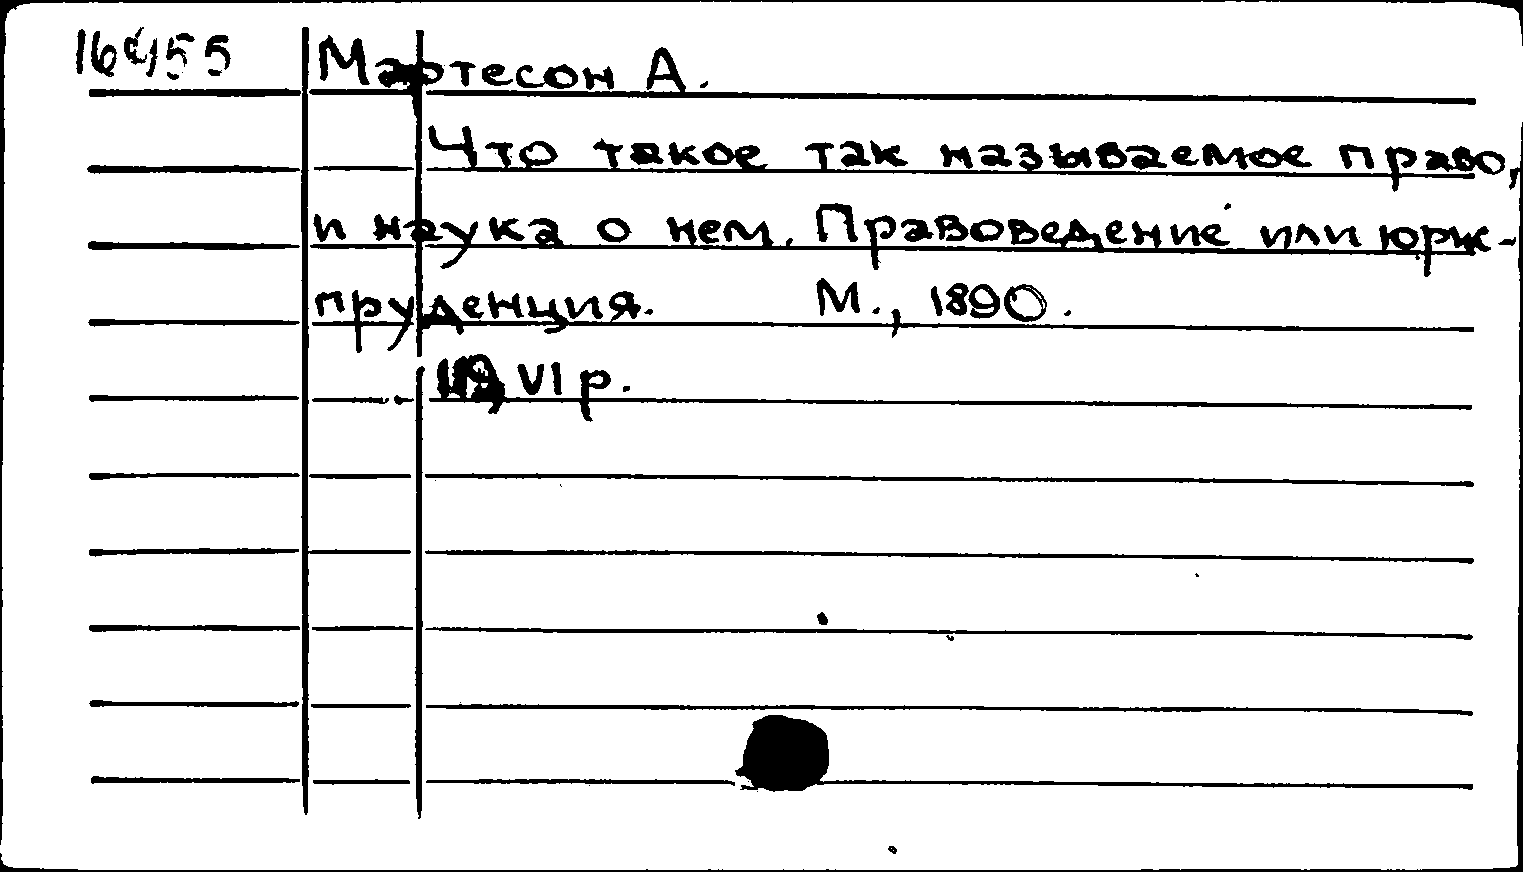 16455 Мартесон А.
Что такое так называемое право,
и наука о нем. Правоведение или юрж-
пруденция. М., 1890.
119, VI p.